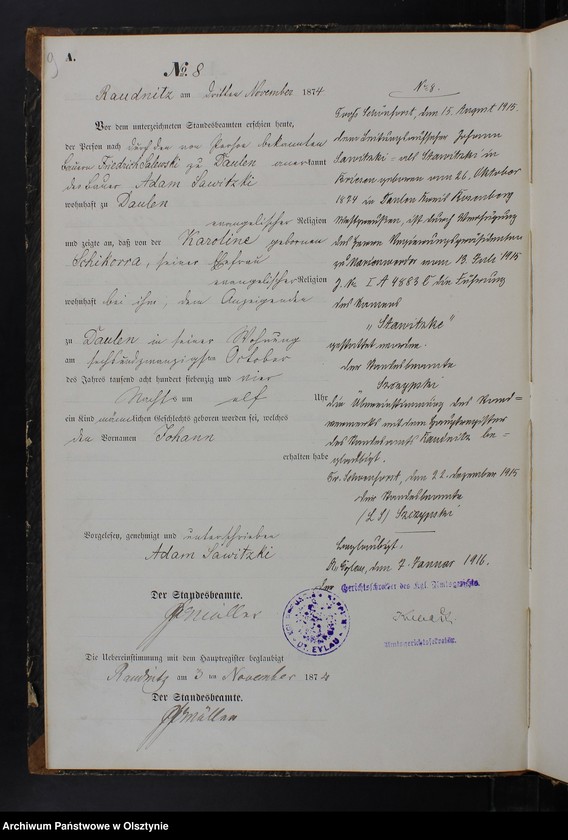 9
A.
No. 8
Raudnitz am dritten November 1874
Vor dem unterzeichneten Standesbeamten erschien heute,
der Person nach durch den von Person bekannten
Bauern Friedrich Salewski zu Daulen anerkannt
der Bauer Adam Sawitzki
wohnhaft zu Daulen
evangelischer Religion
und zeigte an, daß von der Karoline geborenen
Schikorra, seiner Ehefrau
evangelischer Religion
wohnhaft bei ihm, dem Anzeigenden
zu Daulen in seiner Wohnung
am sechsundzwanzigsten October
des Jahres tausend acht hundert siebenzig und vier
Nachts um elf Uhr
ein Kind männlichen Geschlechts geboren worden sei, welches
den Vornamen Johann
erhalten habe
Vorgelesen, genehmigt und unterschrieben
Adam Sawitzki
Der Standesbeamte.
Müller
Die Uebereinstimmung mit dem Hauptregister beglaubigt
Raudnitz am 3 ten November 1874
Der Standesbeamte.
Müller
No 8.
Schönforst, den 15. August 1915.
dem Johann
Sawitzki als Stawitzki in
geboren am 26. Oktober
1874 in Daulen Kreis Rosenberg
Westpreußen, ist durch Verfügung
des Herrn Regierungspräsidenten
zu Marienwerder vom 13. Juli 1915
J. No I A 4883 die Führung
des Namens
„Stawitzke"
gestattet worden.
Der Standesbeamte
Szczypski
Die Übereinstimmung des Rand=
vermerks mit dem Hauptregister
des Standesamts Raudnitz be=
glaubigt.
Gr. Schönforst, den 22. Dezember 1915
Der Standesbeamte
(L.S) Szczypski
Beglaubigt.
Dt. Eylau, den 7. Januar 1916.
Der Gerichtsschreiber des Kgl. Amtsgerichts.
DT. EYLAU
Amtsgerichtssekretär.
Archiwum Państwowe w Olsztynie